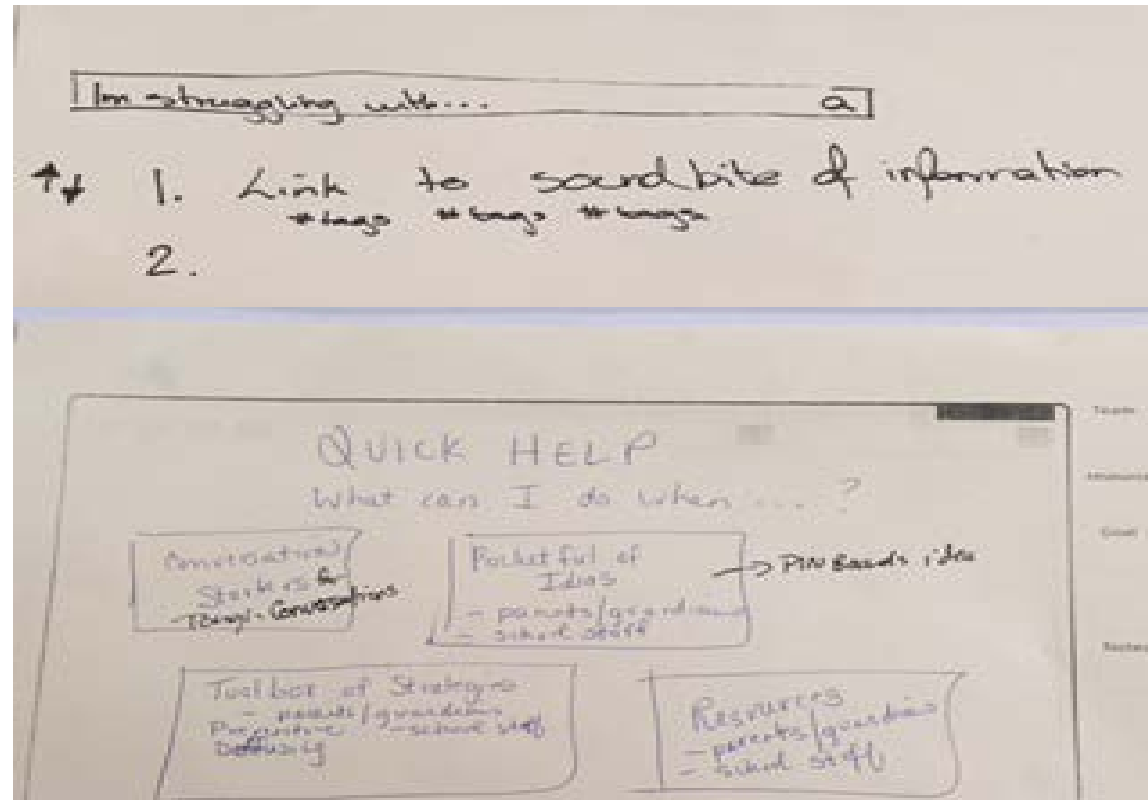 Im struggling with...
1. Link to soundbite of information
#tags #tags #tags
2.
QUICK HELP
What can I do when ....?
Conversation
Starters &
Tough Conversations
Pocket ful of
Ideas
- parents/guardians
- school staff
→ PIN Boards idea
Toolbox of Strategies
- parents/guardians
Preventive - school staff
Defusing
Resources
- parents/guardians
- school staff
Team
Goal